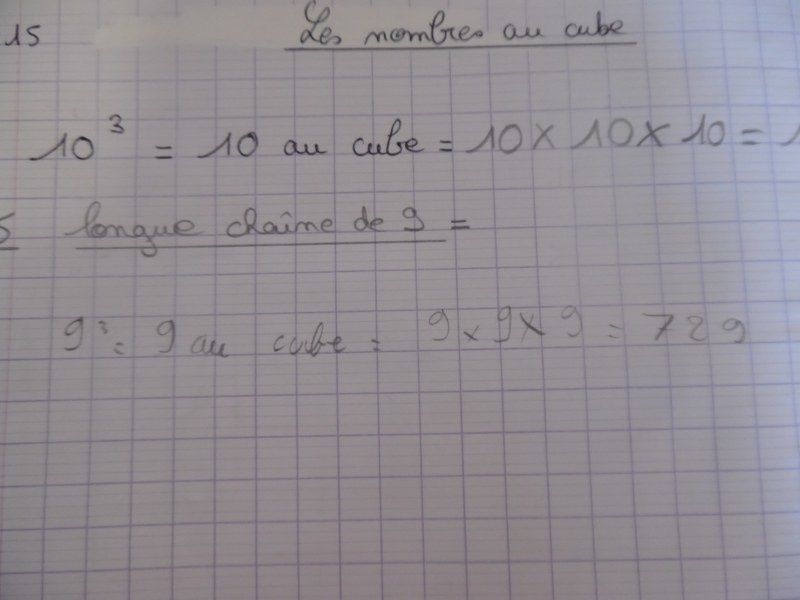 15 Les nombres au cube
10³ = 10 au cube = 10 x 10 x 10 = 1
5 longue chaîne de 9 =
9³ = 9 au cube = 9 x 9 x 9 = 729